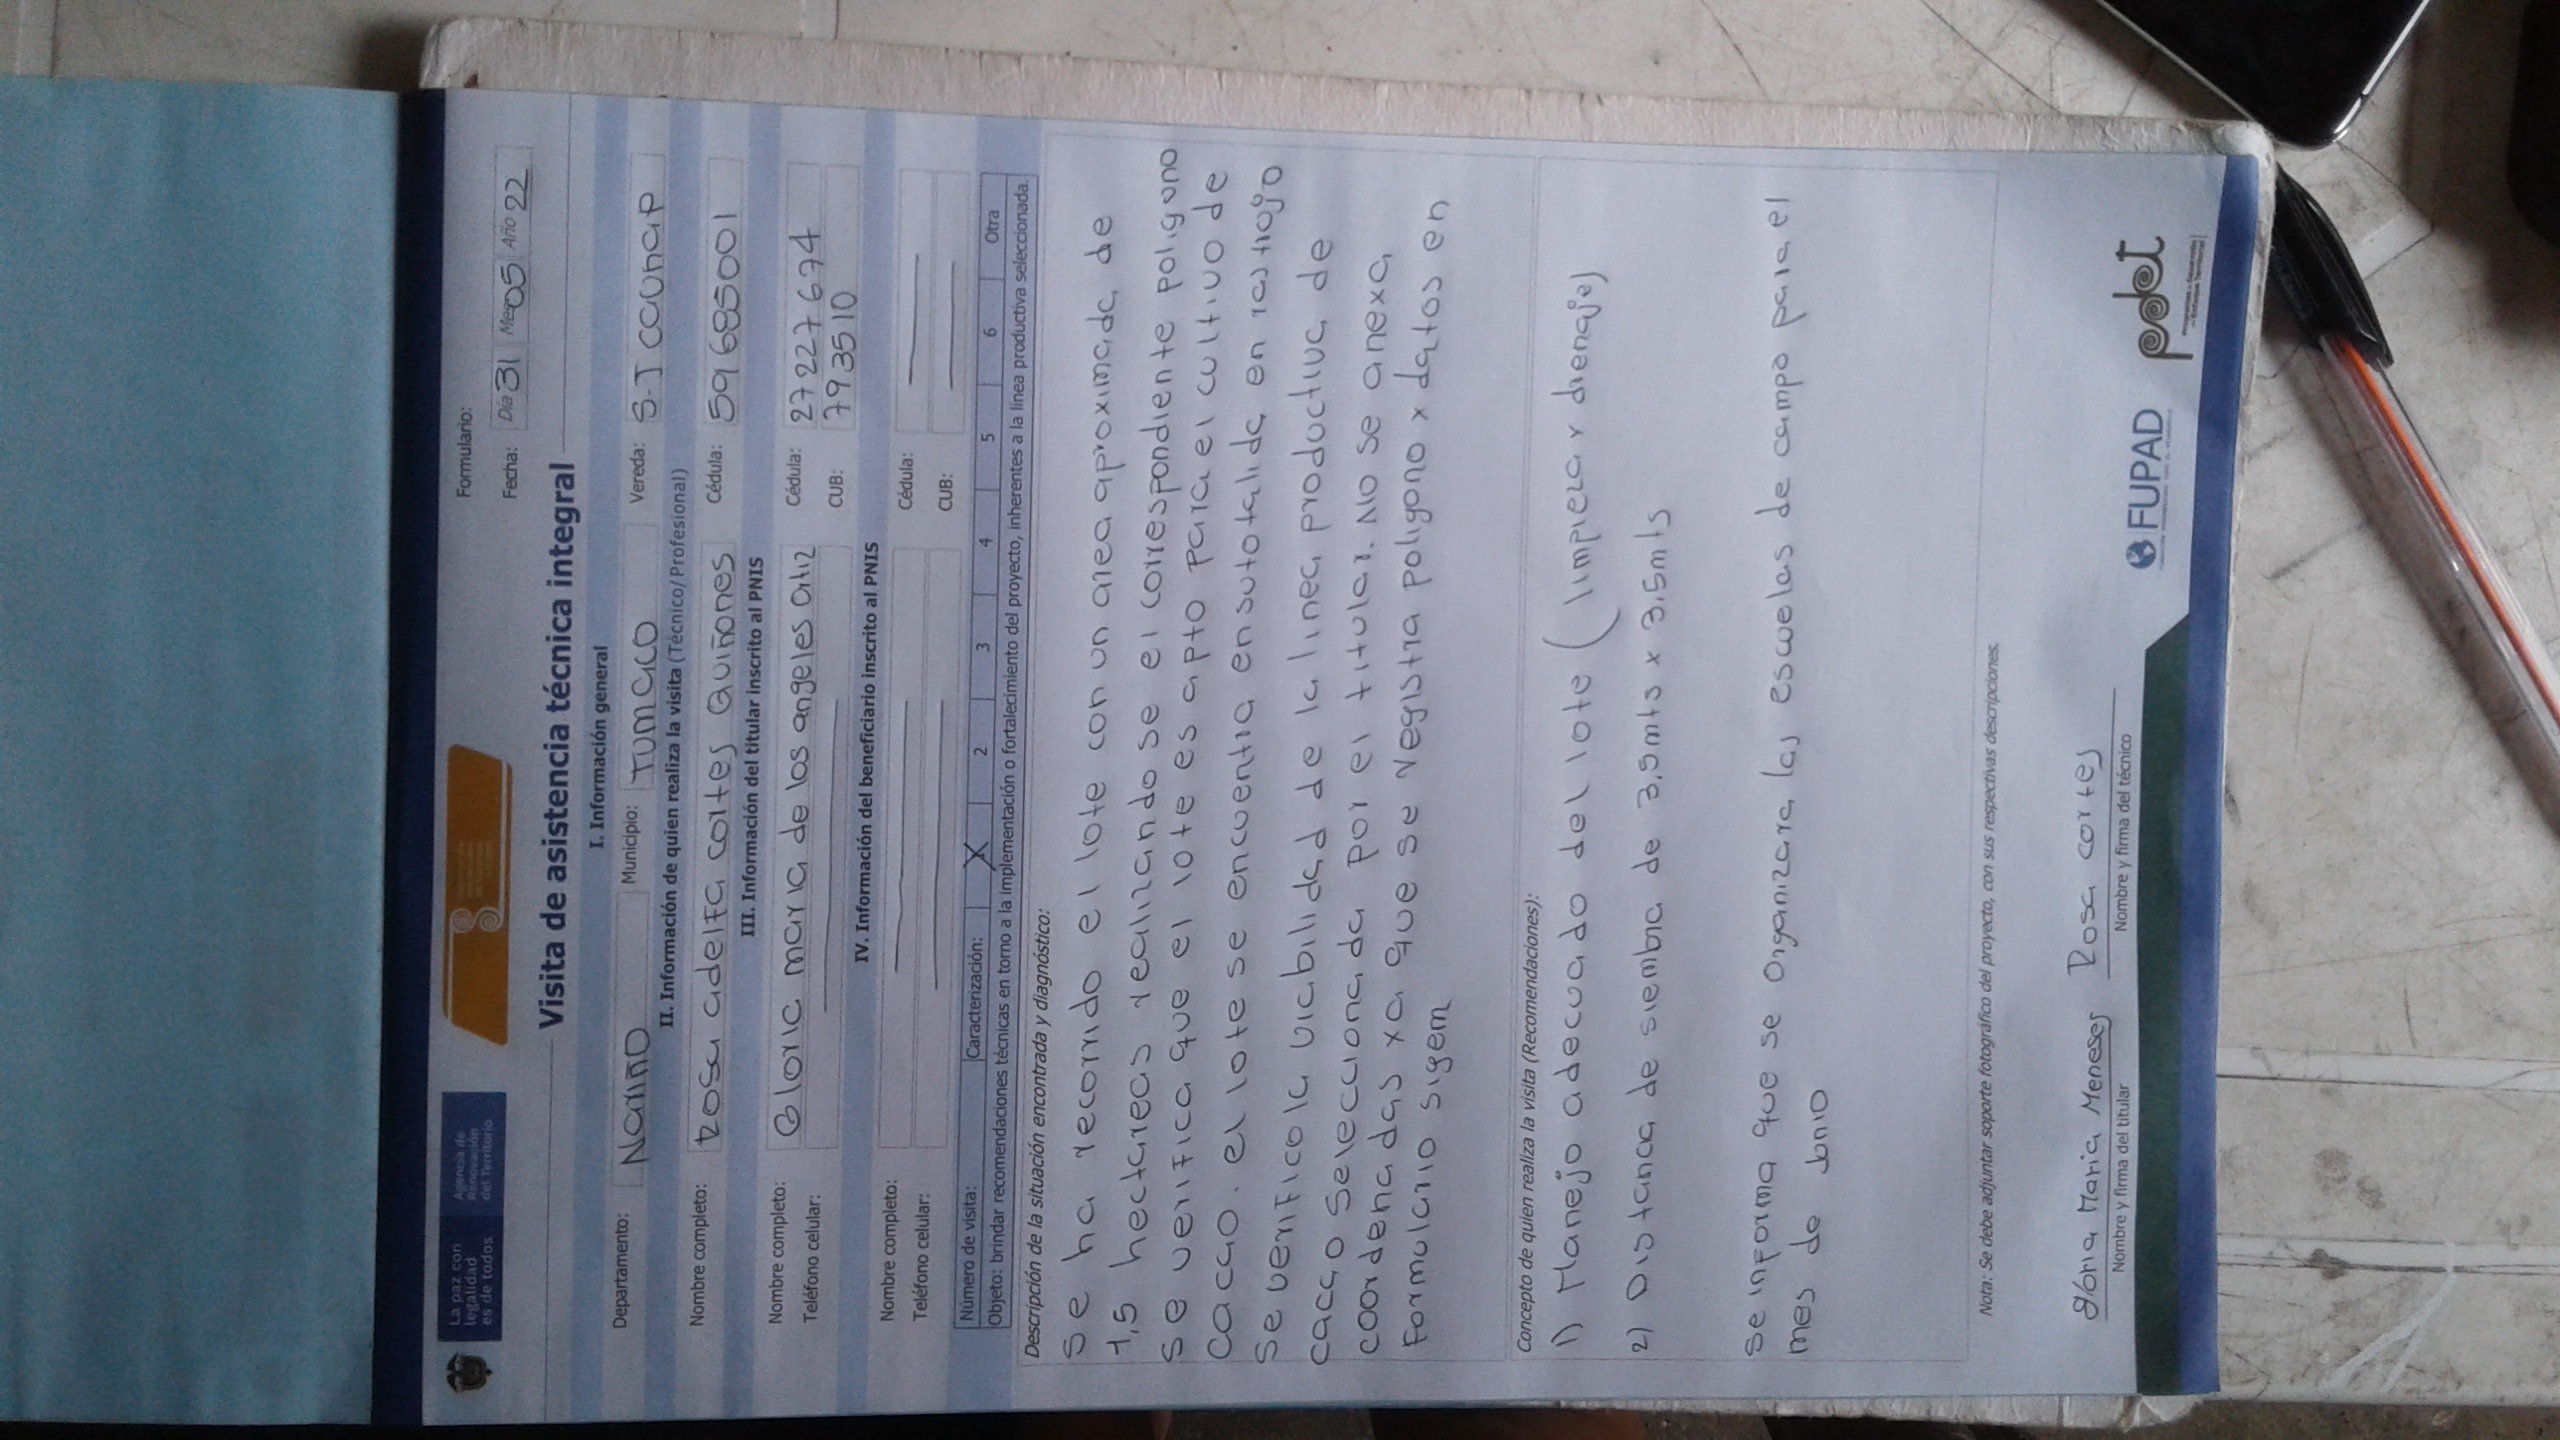 La paz con
legalidad
es de todos
Agencia de
Renovación
del Territorio
Formulario:
Fecha: Día 31 Mes 05 Año 22
Visita de asistencia técnica integral
I. Información general
Departamento: Nariño Municipio: Tumaco Vereda: S.J Caunap
II. Información de quien realiza la visita (Técnico/Profesional)
Nombre completo: Rosa adelfa cortes Quiñones Cédula: 59685001
III. Información del titular inscrito al PNIS
Nombre completo: Gloric maria de los angeles Ortiz Cédula: 27227674
Teléfono celular: CUB: 793510
IV. Información del beneficiario inscrito al PNIS
Nombre completo: Cédula:
Teléfono celular: CUB:
Número de visita: Caracterización: X 2 3 4 5 6 Otra
Objeto: brindar recomendaciones técnicas en torno a la implementación o fortalecimiento del proyecto, inherentes a la línea productiva seleccionada.
Descripción de la situación encontrada y diagnóstico:
Se ha recorrido el lote con un area aproximada de
1,5 hectareas realizando se el correspondiente poligono
se verifica que el lote es apto para el cultivo de
cacao. el lote se encuentra en su totalida en rastrojo
se verifico la viabilidad de la linea productiva de
cacao seleccionada por el titular. No se anexa
coordenadas ya que se registra poligono y datos en
Formulario sigem
Concepto de quien realiza la visita (Recomendaciones):
1) Manejo adecuado del lote (limpieza y drenaje)
2) Distanca de siembra de 3,5mts x 3,5mts
se informa que se organizara las escuelas de campo para el
mes de Junio
Nota: Se debe adjuntar soporte fotográfico del proyecto, con sus respectivas descripciones.
gloria Maria Meneses Rosa cortes
Nombre y firma del titular Nombre y firma del técnico
FUPAD
pdet